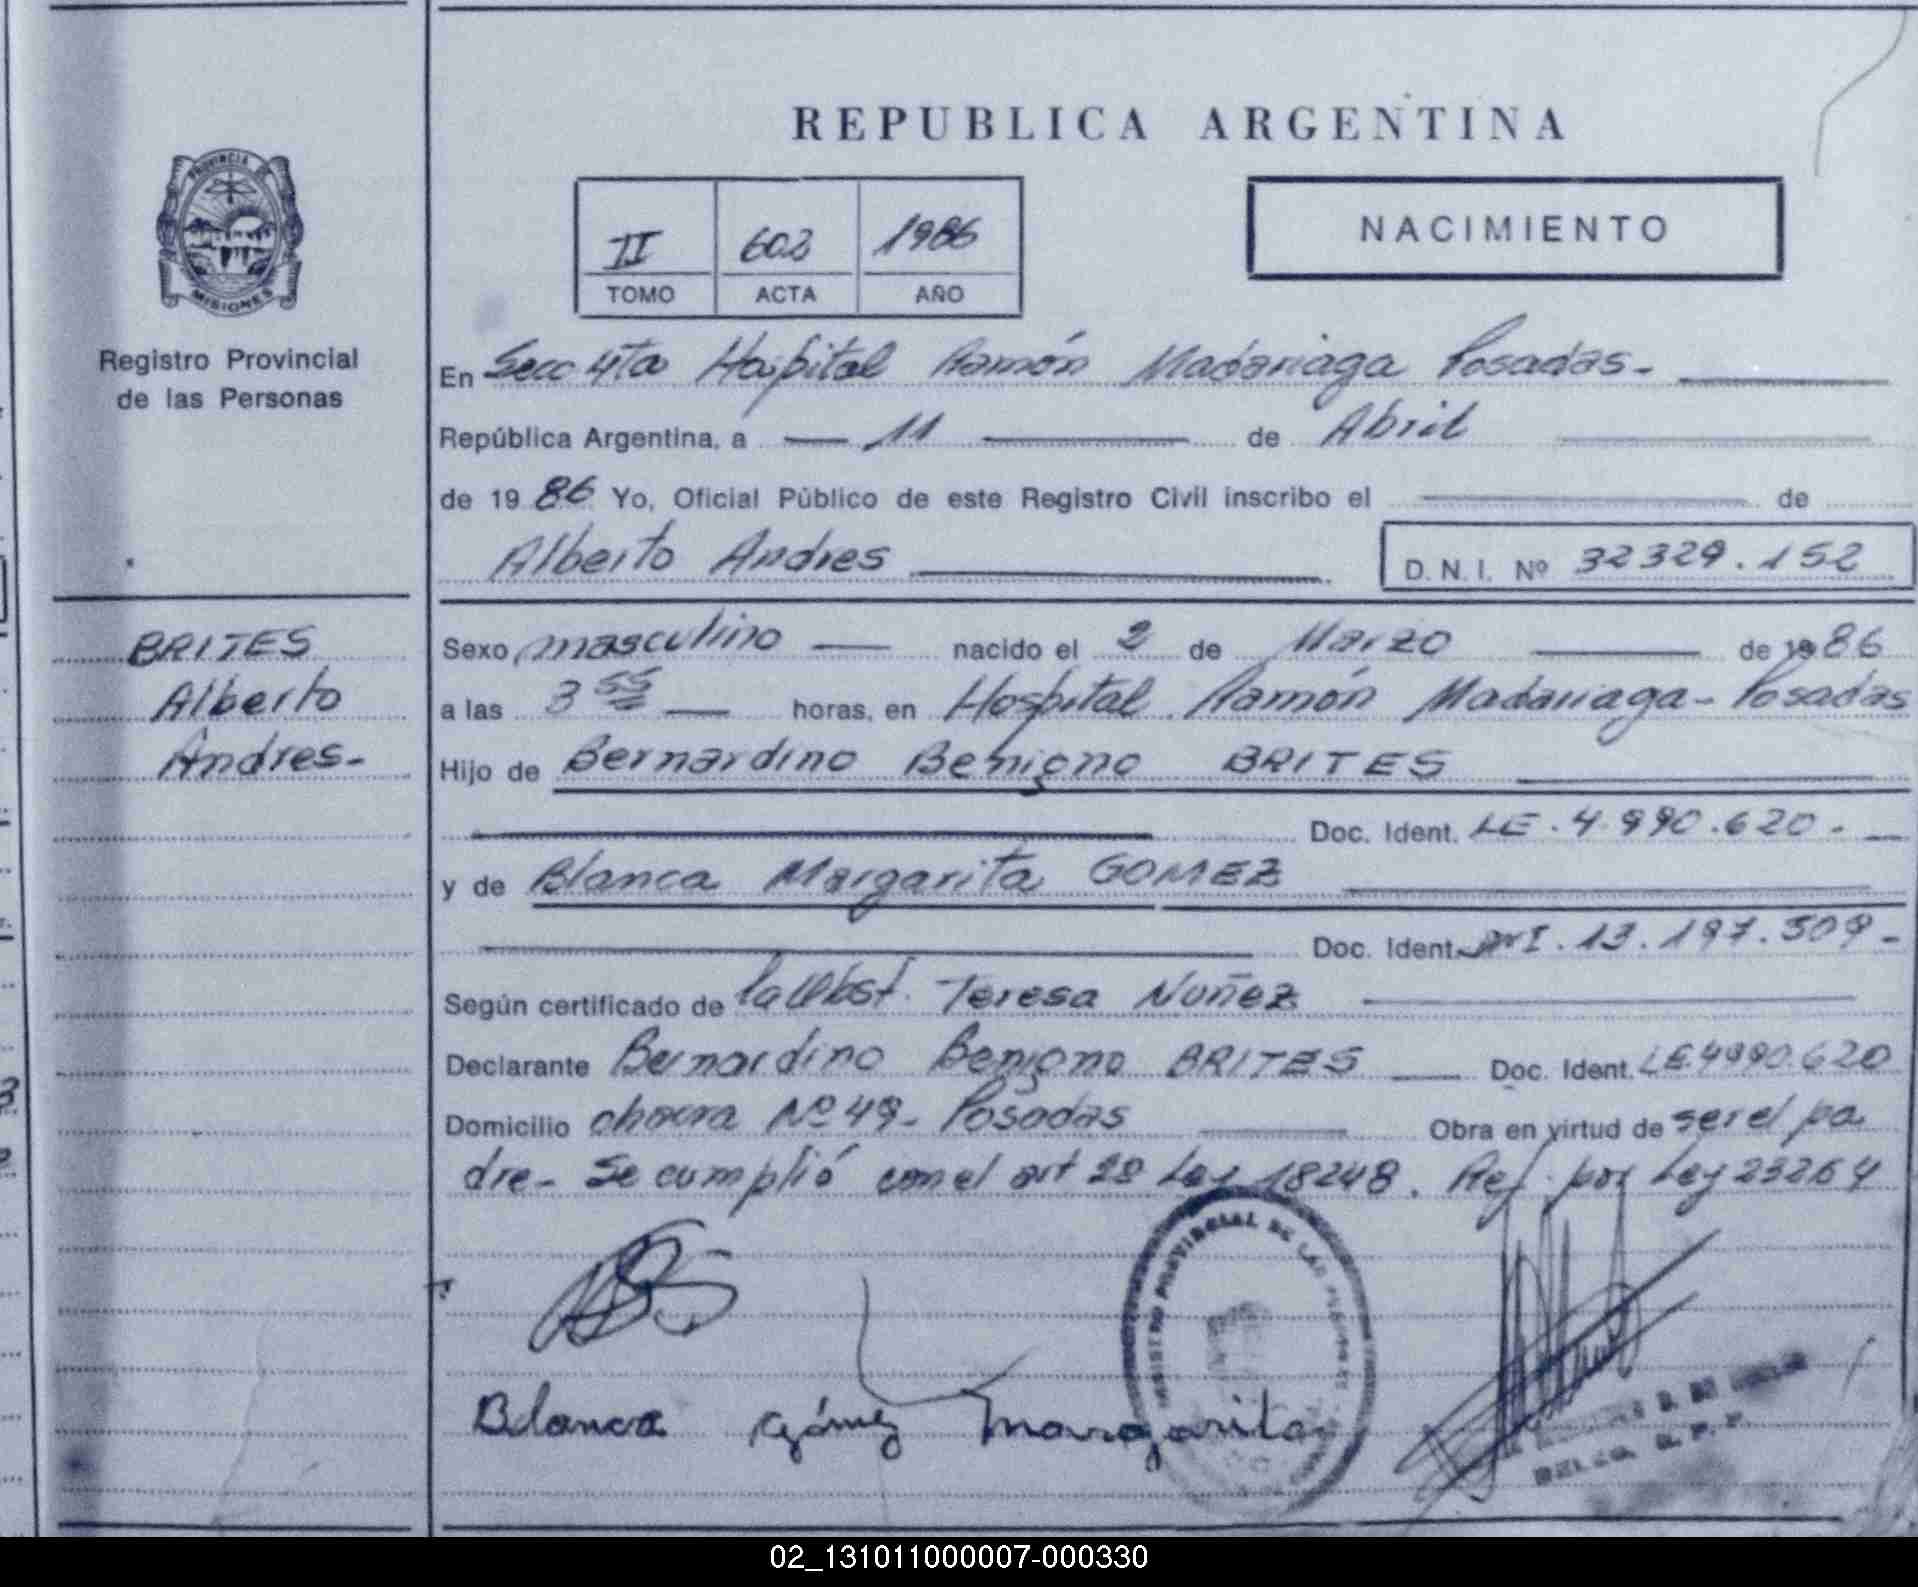 REPUBLICA ARGENTINA
PROVINCIA DE
MISIONES
Registro Provincial
de las Personas
II 602 1986
TOMO ACTA AÑO
NACIMIENTO
En Secc 4ta Hospital Ramón Madariaga Posadas-
República Argentina, a 11 de Abril
de 1986 Yo, Oficial Público de este Registro Civil inscribo el de
Alberto Andres
D. N. I. Nº 32329.152
BRITES
Alberto
Andres-
Sexo masculino nacido el 2 de Marzo de 1986
a las 3 55 horas, en Hospital Ramón Madariaga- Posadas
Hijo de Bernardino Benigno BRITES
Doc. Ident. LE.4.990.620.-
y de Blanca Margarita GOMEZ
Doc. Ident. 13.197.509-
Según certificado de la Obst. Teresa Nuñez
Declarante Bernardino Benigno BRITES Doc. Ident. LE.4990.620
Domicilio chacra Nº 49- Posadas Obra en virtud de ser el pa
dre- Se cumplió con el art 28 Ley 18248. Ref. por Ley 23264
REGISTRO PROVINCIAL DE LAS PERSONAS
Blanca Gómez Margarita
02_131011000007-000330